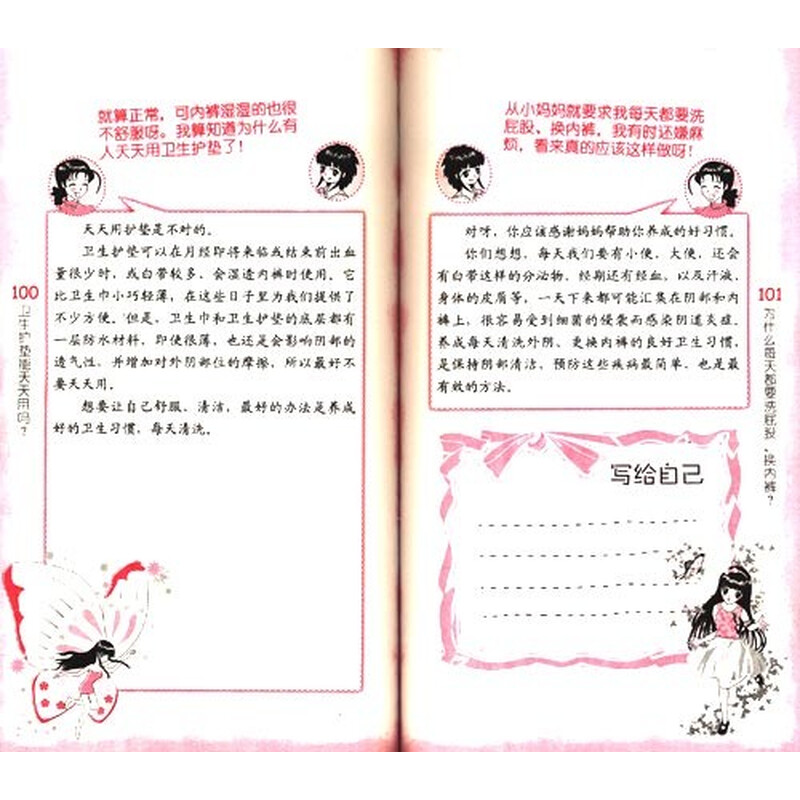 就算正常，可内裤湿湿的也很
不舒服呀。我算知道为什么有
人天天用卫生护垫了！
天天用护垫是不对的。
卫生护垫可以在月经即将来临或结束前出血
量很少时，或白带较多，会湿透内裤时使用。它
比卫生巾小巧轻薄，在这些日子里为我们提供了
不少方便。但是，卫生巾和卫生护垫的底层都有
一层防水材料，即使很薄，也还是会影响阴部的
透气性，并增加对外阴部位的摩擦，所以最好不
要天天用。
想要让自己舒服、清洁，最好的办法是养成
好的卫生习惯，每天清洗。
100
卫生护垫能天天用吗？
从小妈妈就要求我每天都要洗
屁股、换内裤，我有时还嫌麻
烦，看来真的应该这样做呀！
对呀，你应该感谢妈妈帮助你养成的好习惯。
你们想想，每天我们要有小便、大便，还会
有白带这样的分泌物，经期还有经血，以及汗液、
身体的皮屑等，一天下来都可能汇集在阴部和内
裤上，很容易受到细菌的侵袭而感染阴道炎症。
养成每天清洗外阴、更换内裤的良好卫生习惯，
是保持阴部清洁，预防这些疾病最简单、也是最
有效的方法。
写给自己
101
为什么每天都要洗屁股、换内裤？